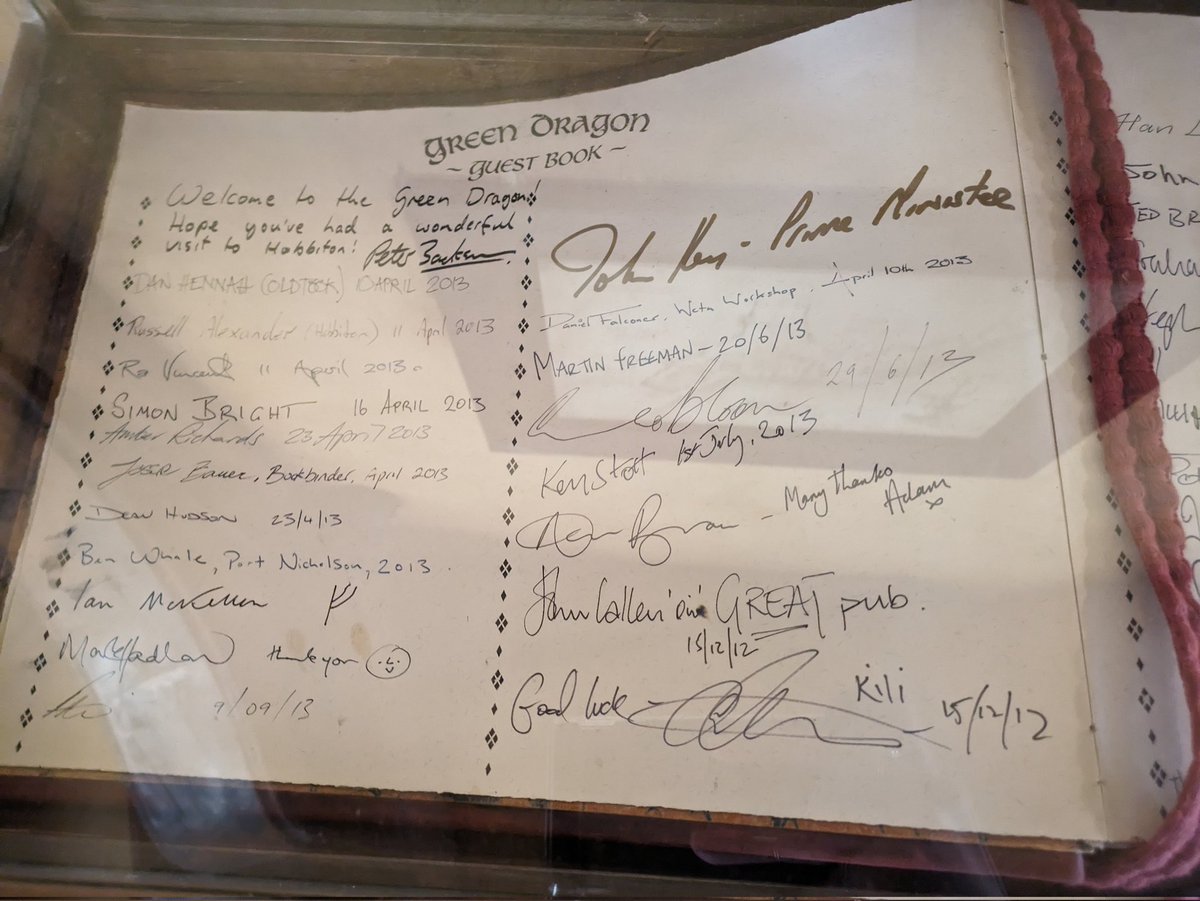 GREEN DRAGON
~ GUEST BOOK ~
Welcome to the Green Dragon!
Hope you've had a wonderful
visit to Hobbiton!
Peter
DAN HENNAH (OLDTOOK) 10 APRIL 2013
Russell Alexander (Hobbiton) 11 April 2013
Ra Vincent 11 April 2013.
SIMON BRIGHT 16 APRIL 2013
Amber Richards 23 April 2013
Bookbinder, April 2013
Dean Hudson 23/4/13
Ben Whale, Port Nicholson, 2013.
Ian McKellen
Mark Hadlow thank you
9/09/13
John Key - Prime Minister
Daniel Falconer, Weta Workshop, April 10th 2013
MARTIN FREEMAN - 20/6/13
29/6/13
Ken Stott 1st July, 2013
Many thanks
Adam
x
John Callen GREAT pub.
15/12/12
Good luck
Kili
15/12/12
Han
John
TED BR
Graha